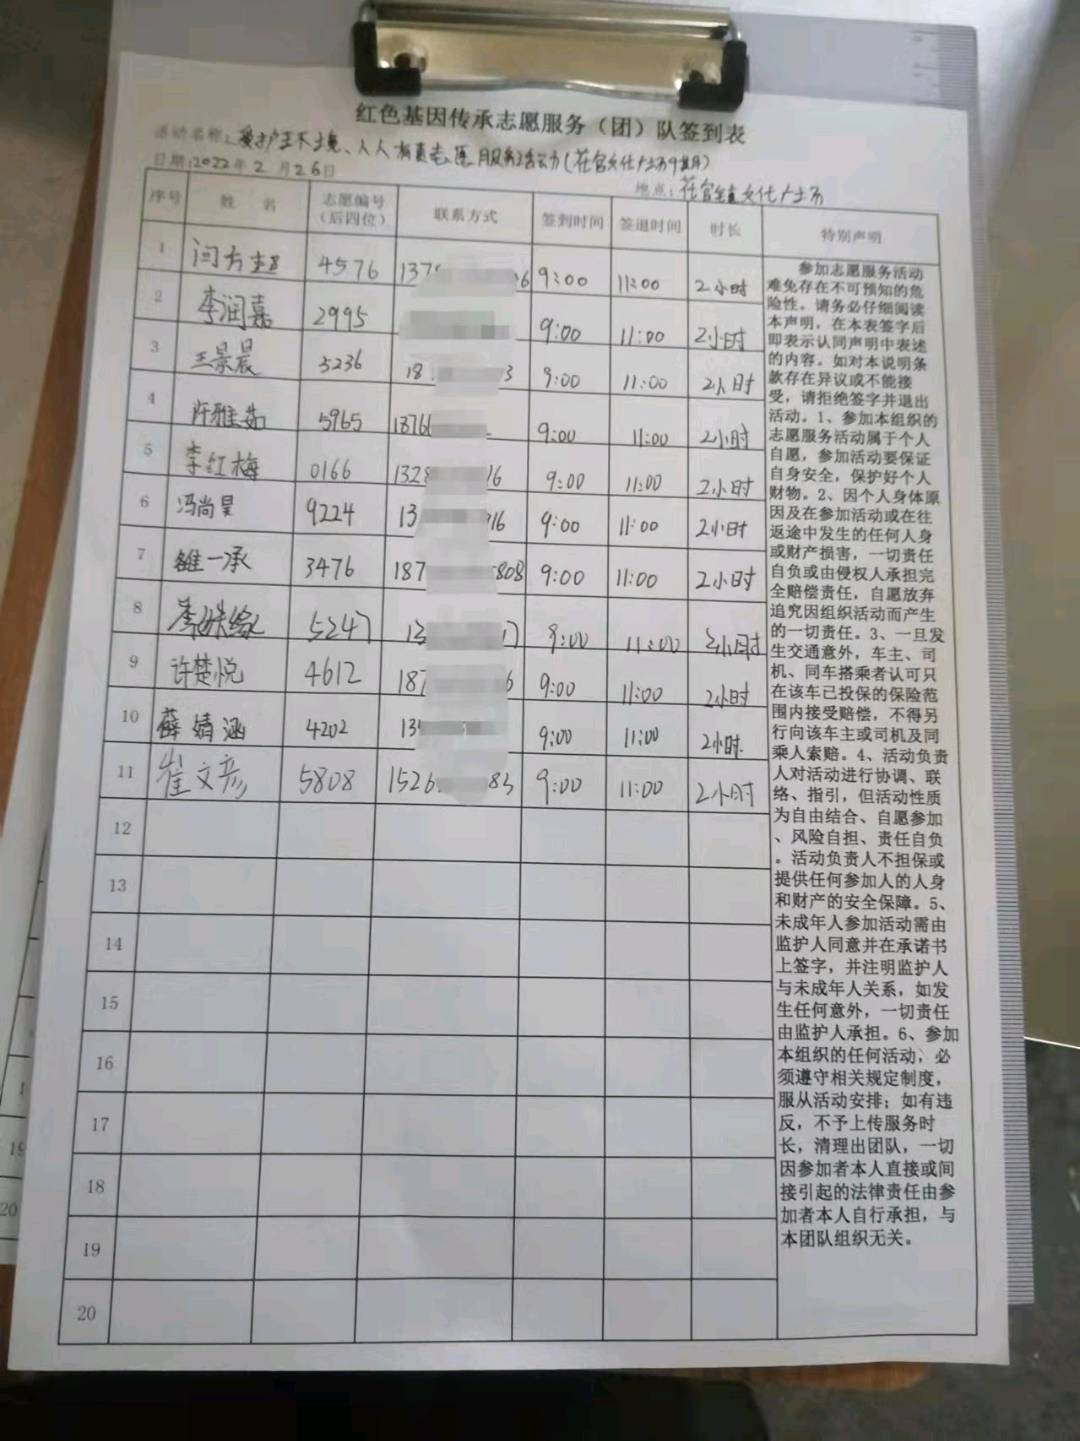 红色基因传承志愿服务（团）队签到表
活动名称：爱护环境、人人有责志愿服务活动（花官文化广场
日期：2022年2月26日
地点：花官镇文化广场
序号 姓 名 志愿编号（后四位） 联系方式 签到时间 签退时间 时长 特别声明
1 闫方 4576 137 6 9:00 11:00 2小时
2 李润嘉 2995 9:00 11:00 2小时
3 王景晨 5236 18 3 9:00 11:00 2小时
4 许雅茹 5965 1376 9:00 11:00 2小时
5 李红梅 0166 1328 16 9:00 11:00 2小时
6 冯尚昊 9224 13 16 9:00 11:00 2小时
7 一承 3476 187 808 9:00 11:00 2小时
8 李 5247 13 9:00 11:00 2小时
9 许楚悦 4612 187 6 9:00 11:00 2小时
10 薛婧涵 4202 13 9:00 11:00 2小时
11 崔文彦 5808 1526 83 9:00 11:00 2小时
12
13
14
15
16
17
18
19
20
参加志愿服务活动
难免存在不可预知的危
险性。请务必仔细阅读
本声明，在本表签字后
即表示认同声明中表述
的内容。如对本说明条
款存在异议或不能接
受，请拒绝签字并退出
活动。1、参加本组织的
志愿服务活动属于个人
自愿，参加活动要保证
自身安全，保护好个人
财物。2、因个人身体原
因及在参加活动或在往
返途中发生的任何人身
或财产损害，一切责任
自负或由侵权人承担完
全赔偿责任，自愿放弃
追究因组织活动而产生
的一切责任。3、一旦发
生交通意外，车主、司
机、同车搭乘者认可只
在该车已投保的保险范
围内接受赔偿，不得另
行向该车主或司机及同
乘人索赔。4、活动负责
人对活动进行协调、联
络、指引，但活动性质
为自由结合、自愿参加
、风险自担、责任自负
。活动负责人不担保或
提供任何参加人的人身
和财产的安全保障。5、
未成年人参加活动需由
监护人同意并在承诺书
上签字，并注明监护人
与未成年人关系，如发
生任何意外，一切责任
由监护人承担。6、参加
本组织的任何活动，必
须遵守相关规定制度，
服从活动安排；如有违
反，不予上传服务时
长，清理出团队，一切
因参加者本人直接或间
接引起的法律责任由参
加者本人自行承担，与
本团队组织无关。
19
20